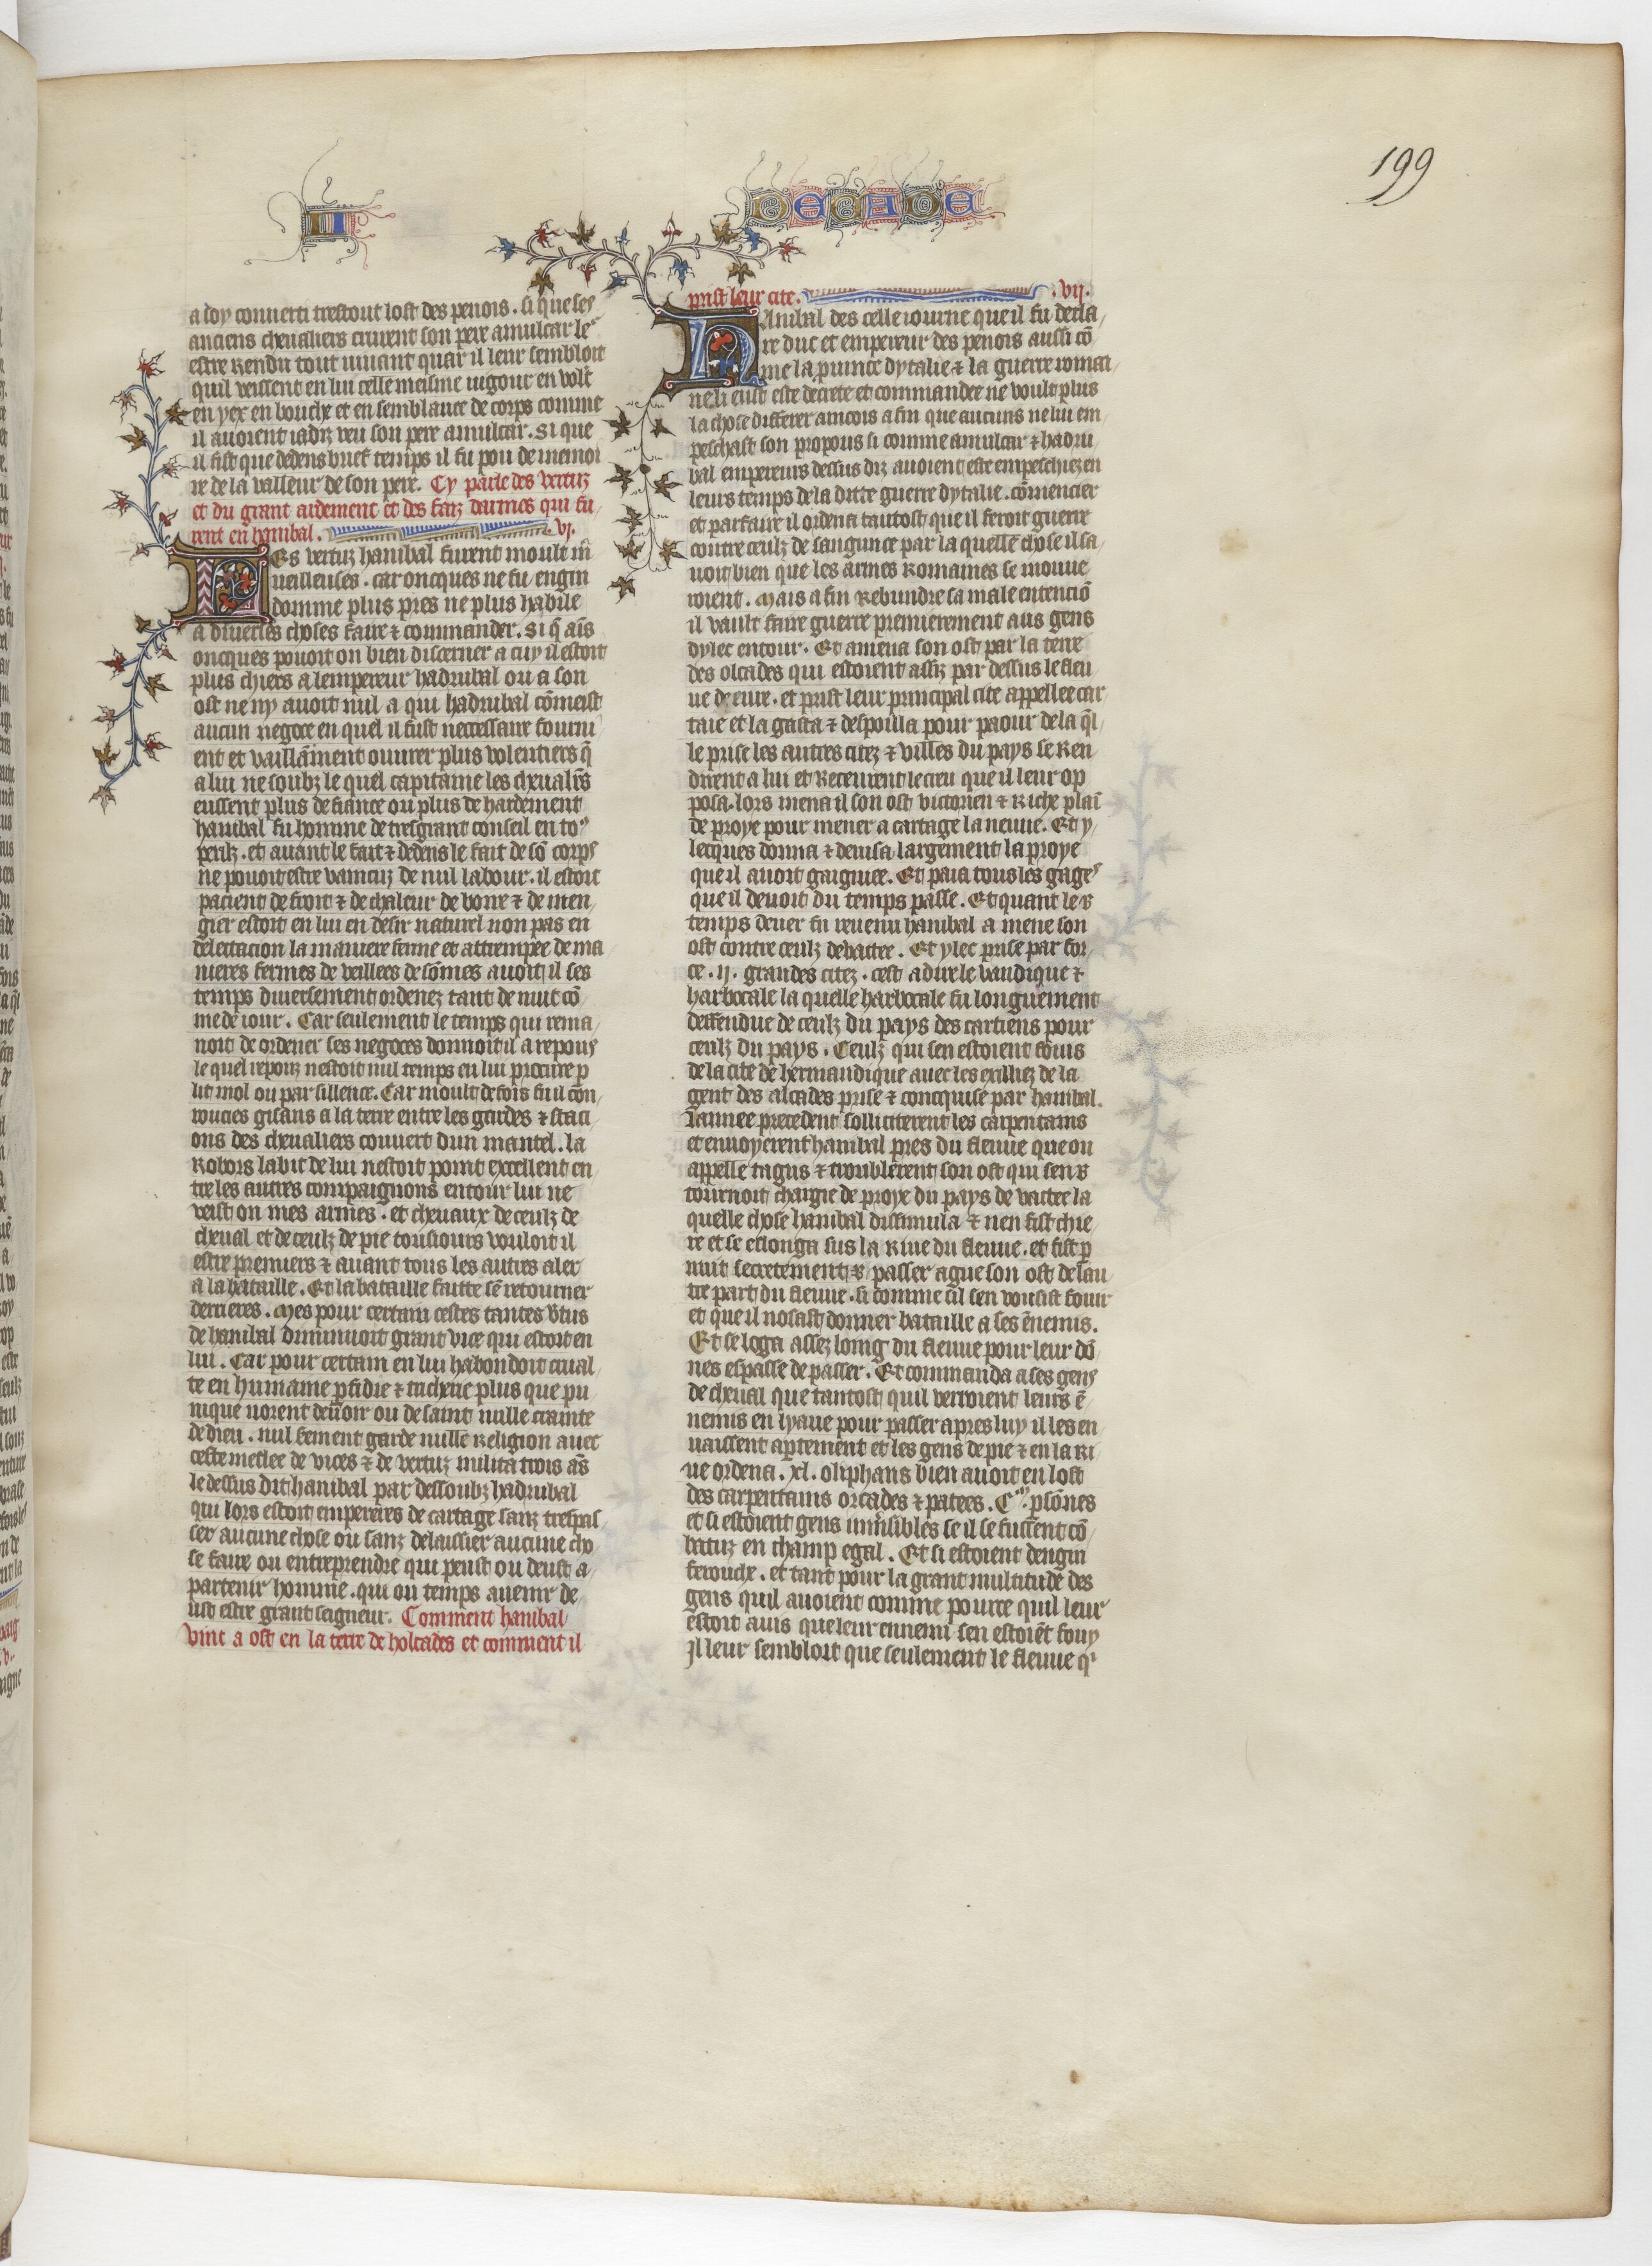 II
DECADE
199
a soy converti trestout lost des penois. si que les
anciens chevaliers crurent son pere amulcar le'
estre rendu tout vivant quar il leur sembloit
quil veissent en lui celle meisme vigour en volt
en yex en bouche et en semblance de corps comme
il avoient iadiz veu son pere amulcar. Si que
il fist que dedens brief temps il fu pou de memoi
re de la valleur de son pere. Cy parle des vertuz
et du grant ardement et des faiz darmes qui fu/
rent en hanibal. .vj.
Les vertuz hanibal furent moult m̃
veilleuses. car oncques ne fu engin
domme plus pres ne plus habile
a diverses choses faire ⁊ commander. Si q̃ ains
oncques pouoit on bien discerner a cuy il estoit
plus chiers a lempereur hadrubal ou a son
ost ne ny avoit nul a qui hadrubal cõmeist
aucun negoce en quel il fust necessaire fourni
ent et vaillãment ouvrer plus volentiers q̃
a lui ne soubz le quel capitaine les chevalrs
eussent plus de fiance ou plus de hardement
hanibal fu homme de tresgrant conseil en to9
perilz. et avant le fait ⁊ dedens le fait de sõ corps
ne pouoit estre vaincuz de nul labour. il estoit
pacient de froit ⁊ de chaleur de boire ⁊ de men/
gier estoit en lui en desir naturel non pas en
delectacion la maniere ferme et attrempee de ma
nieres fermes de veillees de sõmes avoit il ses
temps diversement ordenez tant de nuit cõ/
me de iour. Car seulement le temps qui rema/
noit de ordener ses negoces donnoit il a repous
le quel repoiz nestoit nul temps en lui procure p̲
lit mol ou par sillence. Car moult de fois fu il con/
rouciés gisans a la terre entre les gardes ⁊ staci
ons des chevaliers couvert dun mantel. la
Robois labit de lui nestoit point excellent en
tre les autres compaignons entour lui ne
veist on mes armes. et chevaux de ceulz de
cheval et de ceulz de pie tousiours vouloit il
estre premiers ⁊ avant tous les autres aler
a la bataille. Et la bataille faitte sẽ retourner
derrieres. Mes pour certain cestes tantes v̾tus
de hanibal diminuoit grant vice qui estoit en
lui. Car pour certain en lui habondoit crual/
te en humaine p̲fidie ⁊ tricherie plus que pu
nique norent devoir ou de saint nulle crainte
de dieu. nul serment garde nulle religion avec
ceste meslee de vices ⁊ de vertuz milita trois ãs
le dessus dit hanibal par dessoubz hadrubal
qui lors estoit empereres de cartage sanz trespas/
ser aucune chose ou sanz delaissier aucune cho/
se faire ou entreprendre qui peust ou deust a/
partenir homme. qui ou temps avenir de/
ust estre grant seigneur. Comment hanibal
vint a ost en la terre de holcades et comment il
prist leur cite. .vij.
Hanibal des celle iournee que il fu decla/
re duc et empereur des penois aussi cõ
me la prince dytalie ⁊ la guerre romai/
ne li eust este decrete et commandee ne voult plus
la chose differer aincois a fin que aucuns ne lui em
peschast son propous si comme amulcar ⁊ hadru
bal empereurs dessus diz avoient este empeschiez en
leurs temps de la ditte guerre dytalie. cõmencier
et parfaire il ordena tantost que il feroit guerre
contre ceulz de sangunce par la quelle chose il sa/
voit bien que les armes Romaines se mouve
roient. Mais a fin Rebundre sa male entencio̅
il vault faire guerre premierement aus gens
dylec entour. Et amena son ost par la terre
des olcades qui estoient assiz par dessus le fleu
ve de eure. et prist leur principal cite appellee car
taie et la gasta ⁊ despoilla pour paour de la q̃l
le prise les autres citez ⁊ villes du pays se ren
dirent a lui et receurent le treu que il leur op
posa. lors mena il son ost victorien ⁊ riche plai̅
de proye pour mener a cartage la neuve. Et y/
lecques donna ⁊ devisa largement la proye
que il avoit gaignee. Et paia tous les gages
que il devoit du temps passe. Et quant le ꝛ
temps dever fu revenu hanibal a mene son
ost contre ceulz debactee. Et ylec prise par for
ce .ij. grandes citez. cest a dire le vaudique ⁊
harbocale la quelle harbocale fu longuement
deffendue de ceulz du pays des cartiens pour
ceulz du pays. Ceulz qui sen estoient fouis
de la cite de hermandique avec les exilliez de la
gent des alcades prise ⁊ concquise par hanibal.
Lannee precedent solliciterent les carpentains
et envoyerent hanibal pres du fleuve que on
appelle tagus ⁊ troublerent son ost qui sen ꝛ
tournoit chargie de proye du pays de vactee la
quelle chose hanibal dissimula ⁊ nen fist chie/
re et se eslonga sus la rive du fleuve. et fist p̲
nuit secretement ꝛ passer a gue son ost de lau/
tre part du fleuve. si comme cil sen vousist fouir
et que il nosast donner bataille a ses ẽnemis.
Et se loga assez loing du fleuve pour leur dõ/
nes espasse de passer. Et commanda a ses gens
de cheval que tantost quil verroient leurs ẽ/
nemis en lyaue pour passer apres luy il les en
vaissent apertement et les gens de pie ⁊ en la ri
ve ordena .xl. oliphans bien avoit en lost
des carpentains orcades ⁊ patees. Cᵐ. p̲sõnes
et si estoient gens invisibles se il se fussent cõ
batuz en champ egal. Et si estoient dengin
ferouche. et tant pour la grant multitude des
gens quil avoient comme pource quil leur
estoit avis que leur ennemi sen estoiẽt fouy
Il leur sembloit que seulement le fleuve qⁱ